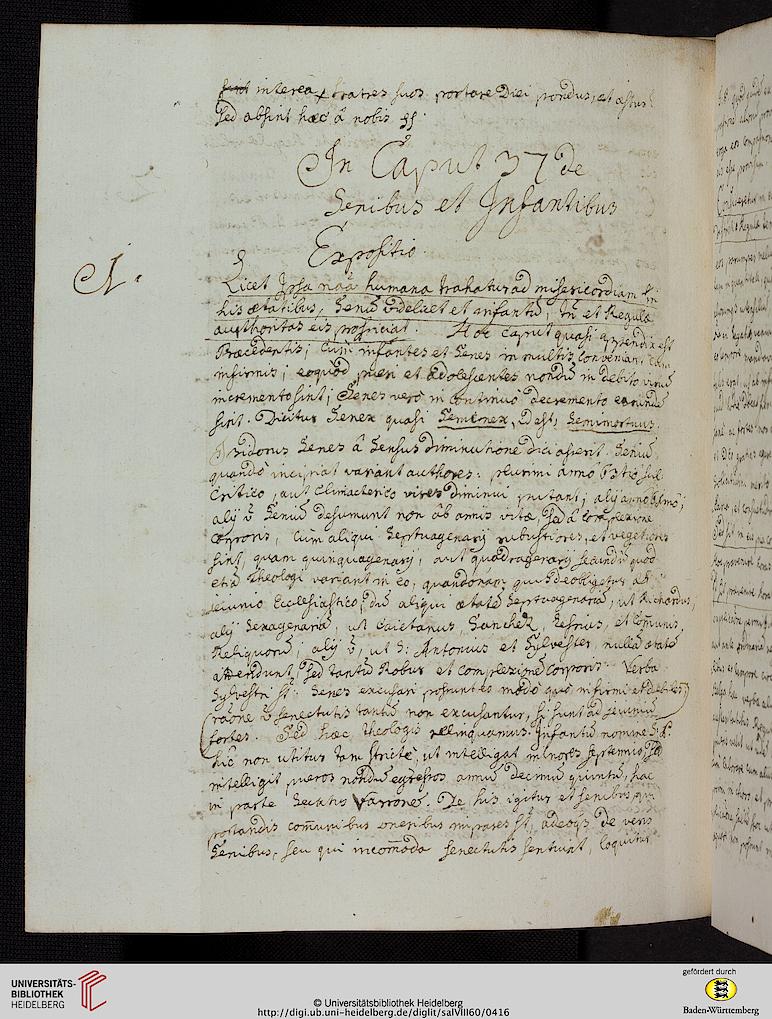 interea, fratres suos portare Diei pondus, et æstus:
sed absint hæc â nobis.
In Caput 37 de
Senibus et Infantibus
Expositio.
1.
Licet Ipsa naã humana trahatur ad misericordiam in
his ætatibus, Senũ videlicet et infantũ, tñ et Regulæ
authoritas eis prospiciat. Hoc caput quasi appendix est
Præcedentis; cũm infantes et Senes in multis conveniant cum
infirmis; eoquòd pueri et adolescentes nondũ in debito viriũ
incremento sint; Senes verò in continuô decremento earundẽ
sint. Dicitur Senex quasi Semenex, id est, Semimortuus.
Isidorus Senes â Sensus diminutione dici asserit. Seniũ
quandô incipiat variant authores: plurimi annô 63tio seu
Critico, aut Climacterico vires diminui putant; alij anno
alij v̂ Seniũ desumunt non âb annis vitæ, sed â Complexione
corporis, cũm aliqui Septuagenarij robustiores, et vegetiores
sint, quam quinquagenarij, aut quadragenarij secundũ quod
etiã Theologi variant in eo, quandonam quis deobligetur ab
ieiunio Ecclesiastico; dũ aliqui ætatẽ Septuagenariã, ut Richardus,
alij Sexagenariã, ut Caietanus, Sanchez, Lessius, et Cõmunis
Reliquorũ; alij v̂, ut S: Antonius et Sylvester, nullã ætatẽ
attendunt, sed tantũ Robur et complexionẽ corporis. Verba
Sylvestri st: Senes excusari possunt eo modo quo infirmi et debiles;
raõne v̂ senectutis tantũ non excusantur, si sunt ad ieiuniũ
fortes. Sed hæc Theologis relinquamus. Infantũ nomine S: P:
hîc non utitur tam stricte, ut intelligat minores septennio, sed
intelligit pueros nondũ egressos annũ decimũ quintũ, hac
in parte Sectatus Varronẽ. De his igitur et senibus qui
portandis com̃unibus oneribus impares st, adeoq̃ de veris
Senibus, seu qui incom̃oda senectutis sentiunt, loquitur
UNIVERSITÄTS-
BIBLIOTHEK
HEIDELBERG
© Universitätsbibliothek Heidelberg
http://digi.ub.uni-heidelberg.de/diglit/salVII60/0416
gefördert durch
Baden-Württemberg